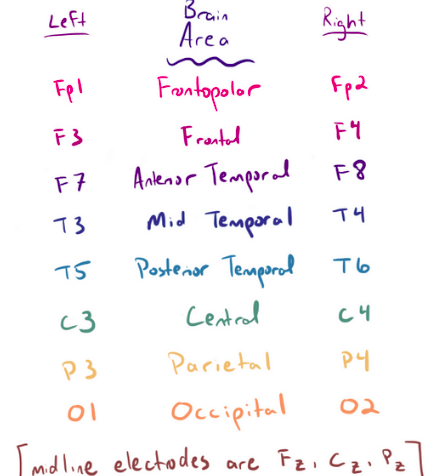 Left Brain Area Right
Fp1 Frontopolar Fp2
F3 Frontal F4
F7 Anterior Temporal F8
T3 Mid Temporal T4
T5 Posterior Temporal T6
C3 Central C4
P3 Parietal P4
O1 Occipital O2
[midline electodes are Fz, Cz, Pz]